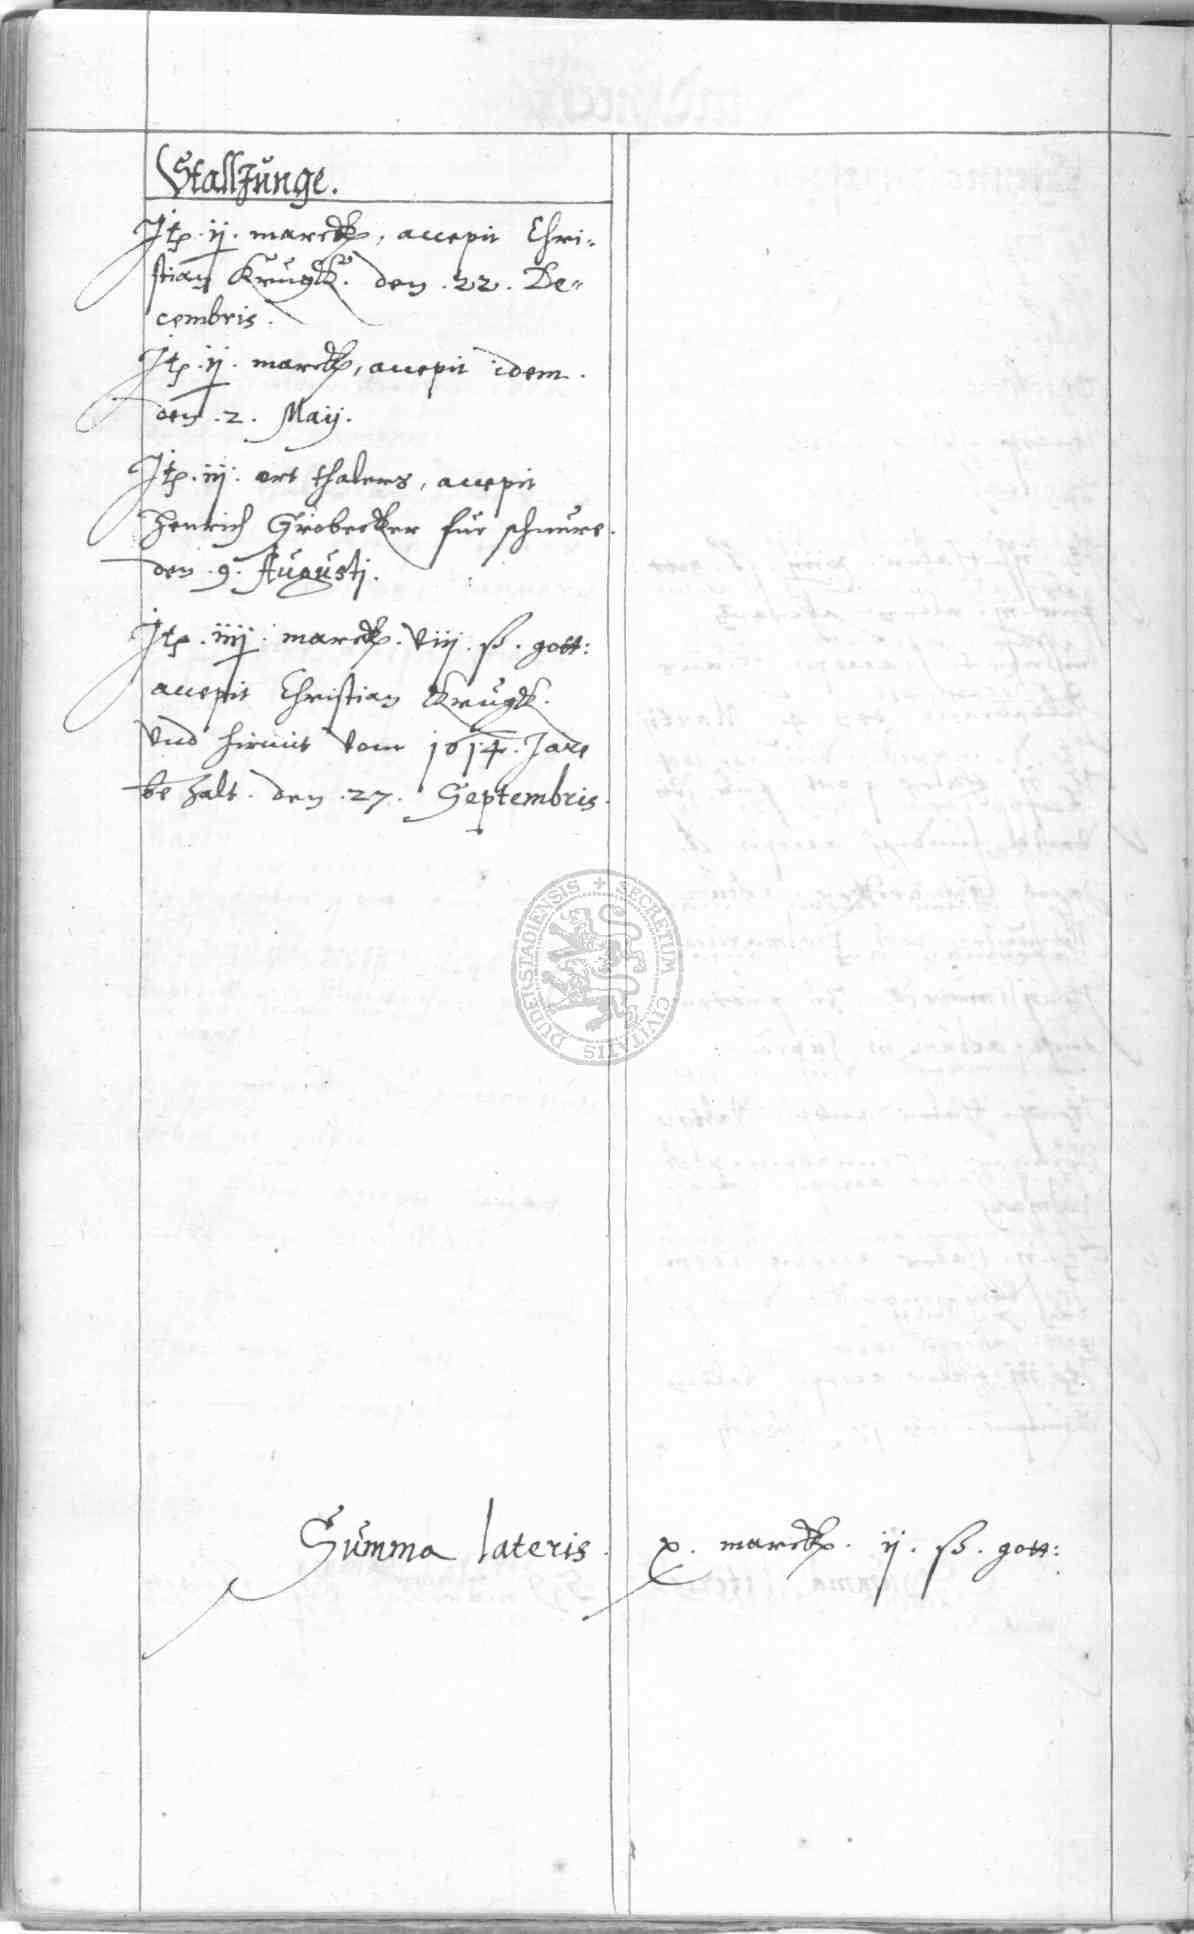 StallJunge.
Itp. ij. marck, accepit Chri-
stian Krugk. den .22. De-
cembris.
Itp. ij. marck, accepit idem.
den .2. Maij.
Itp. iij. ort thalers, accepit
Henrich Grobecker für schnure.
den .9. Augusti.
Itp. iiij. marck. viij. ß. gott:
accepit Christian Krugk.
vnd hirmit vom 1614. Jare
bezalt. den .27. Septembris.
DUDERSTADIENSIS + SECRETUM CIVITATIS
Summa lateris. x. marck. ij. ß. gott: